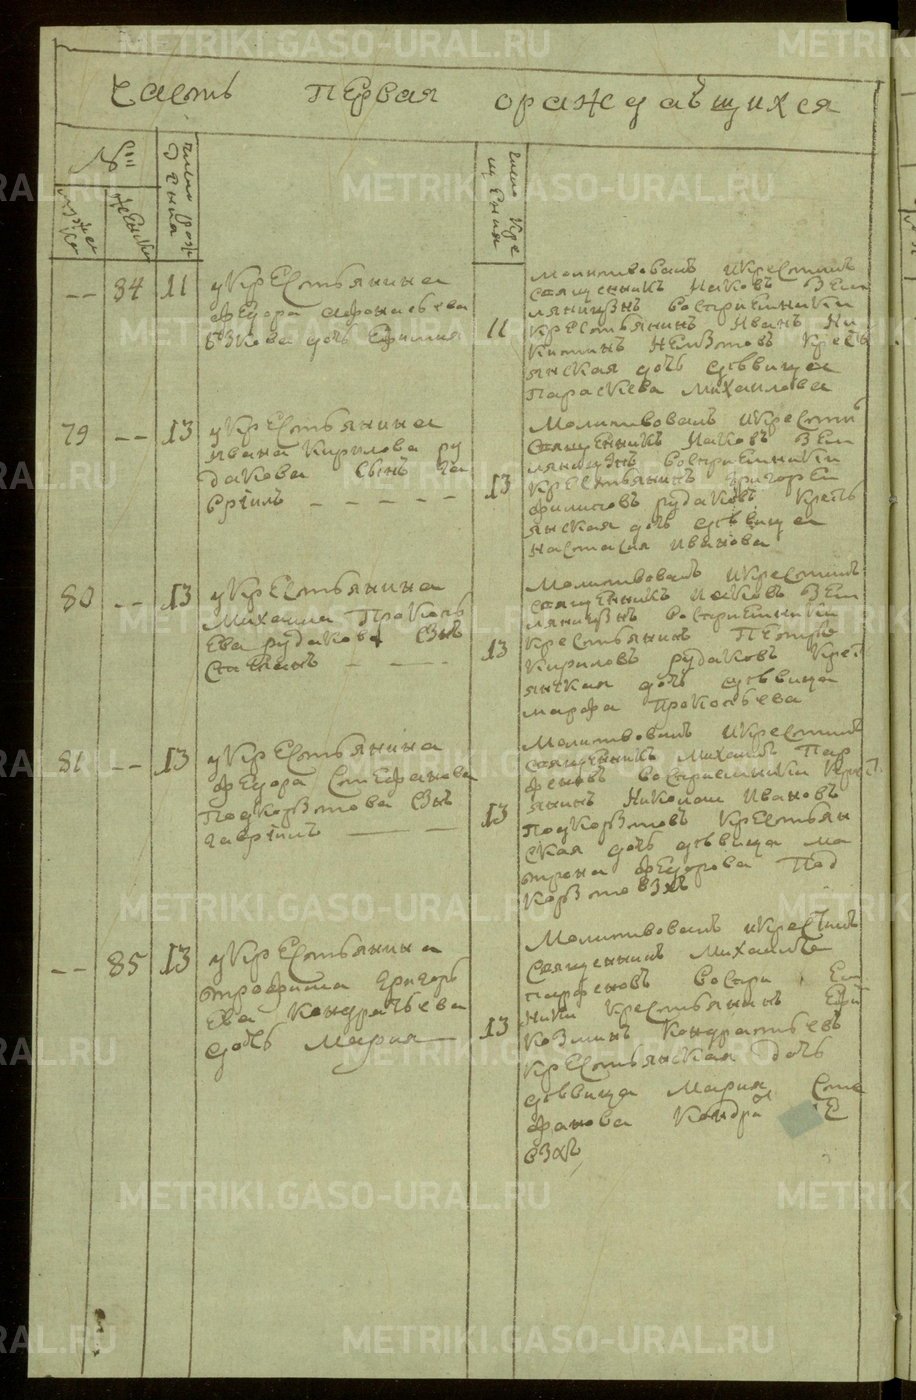 METRIKI.GASO-URAL.RU
Часть первая ораждающихся
№
мужеск
женски
число рож
дения
число кре
щения
-- 84 11
укрестьянина
федора афонасьева
дочь
11
Молитвовалъ икрестилъ
Священникъ Иаковъ Зем
ляницынъ восприемники
крестьянинъ Иванъ Ни
китинъ крестъ
янская дочь девица
Параскева Михаилова
79 -- 13
укрестьянина
Ивана Кирилова ру
дакова сынъ га
вріилъ - - - - -
13
Молитвовалъ икрестилъ
Священникъ Иаковъ Зем
ляницынъ восприемники
крестьянинъ григореи
филиповъ рудаковъ кресть
янская дочь девица
настасия иванова
80 -- 13
укрестьянина
Михаила Прокопь
ева рудакова сынъ
- - -
13
Молитвовалъ икрестилъ
Священникъ Иаковъ Зем
ляницынъ восприемники
крестьянинъ Петръ
Кириловъ рудаковъ крест
янская дочь девица
марфа Прокопьева
81 -- 13
укрестьянина
федора Стефанова
Подкорытова сынъ
гавріилъ - -
13
Молитвовалъ икрестилъ
Священникъ Михаилъ Пар
феновъ восприемники крест
янинъ Николаи Ивановъ
Подкорытовъ крестьян
ская дочь девица ма
трона федорова Под
корытовыхъ
-- 85 13
укрестьянина
трофима григорь
ева Кондратьева
дочь Мария -
13
Молитвовалъ икрестилъ
Священникъ Михаилъ
парфеновъ воспри ем
ники крестьянинъ
Козминъ Кондратьевъ
крестьянская дочь
девица Мария Сте
фанова Кондрат е
выхъ